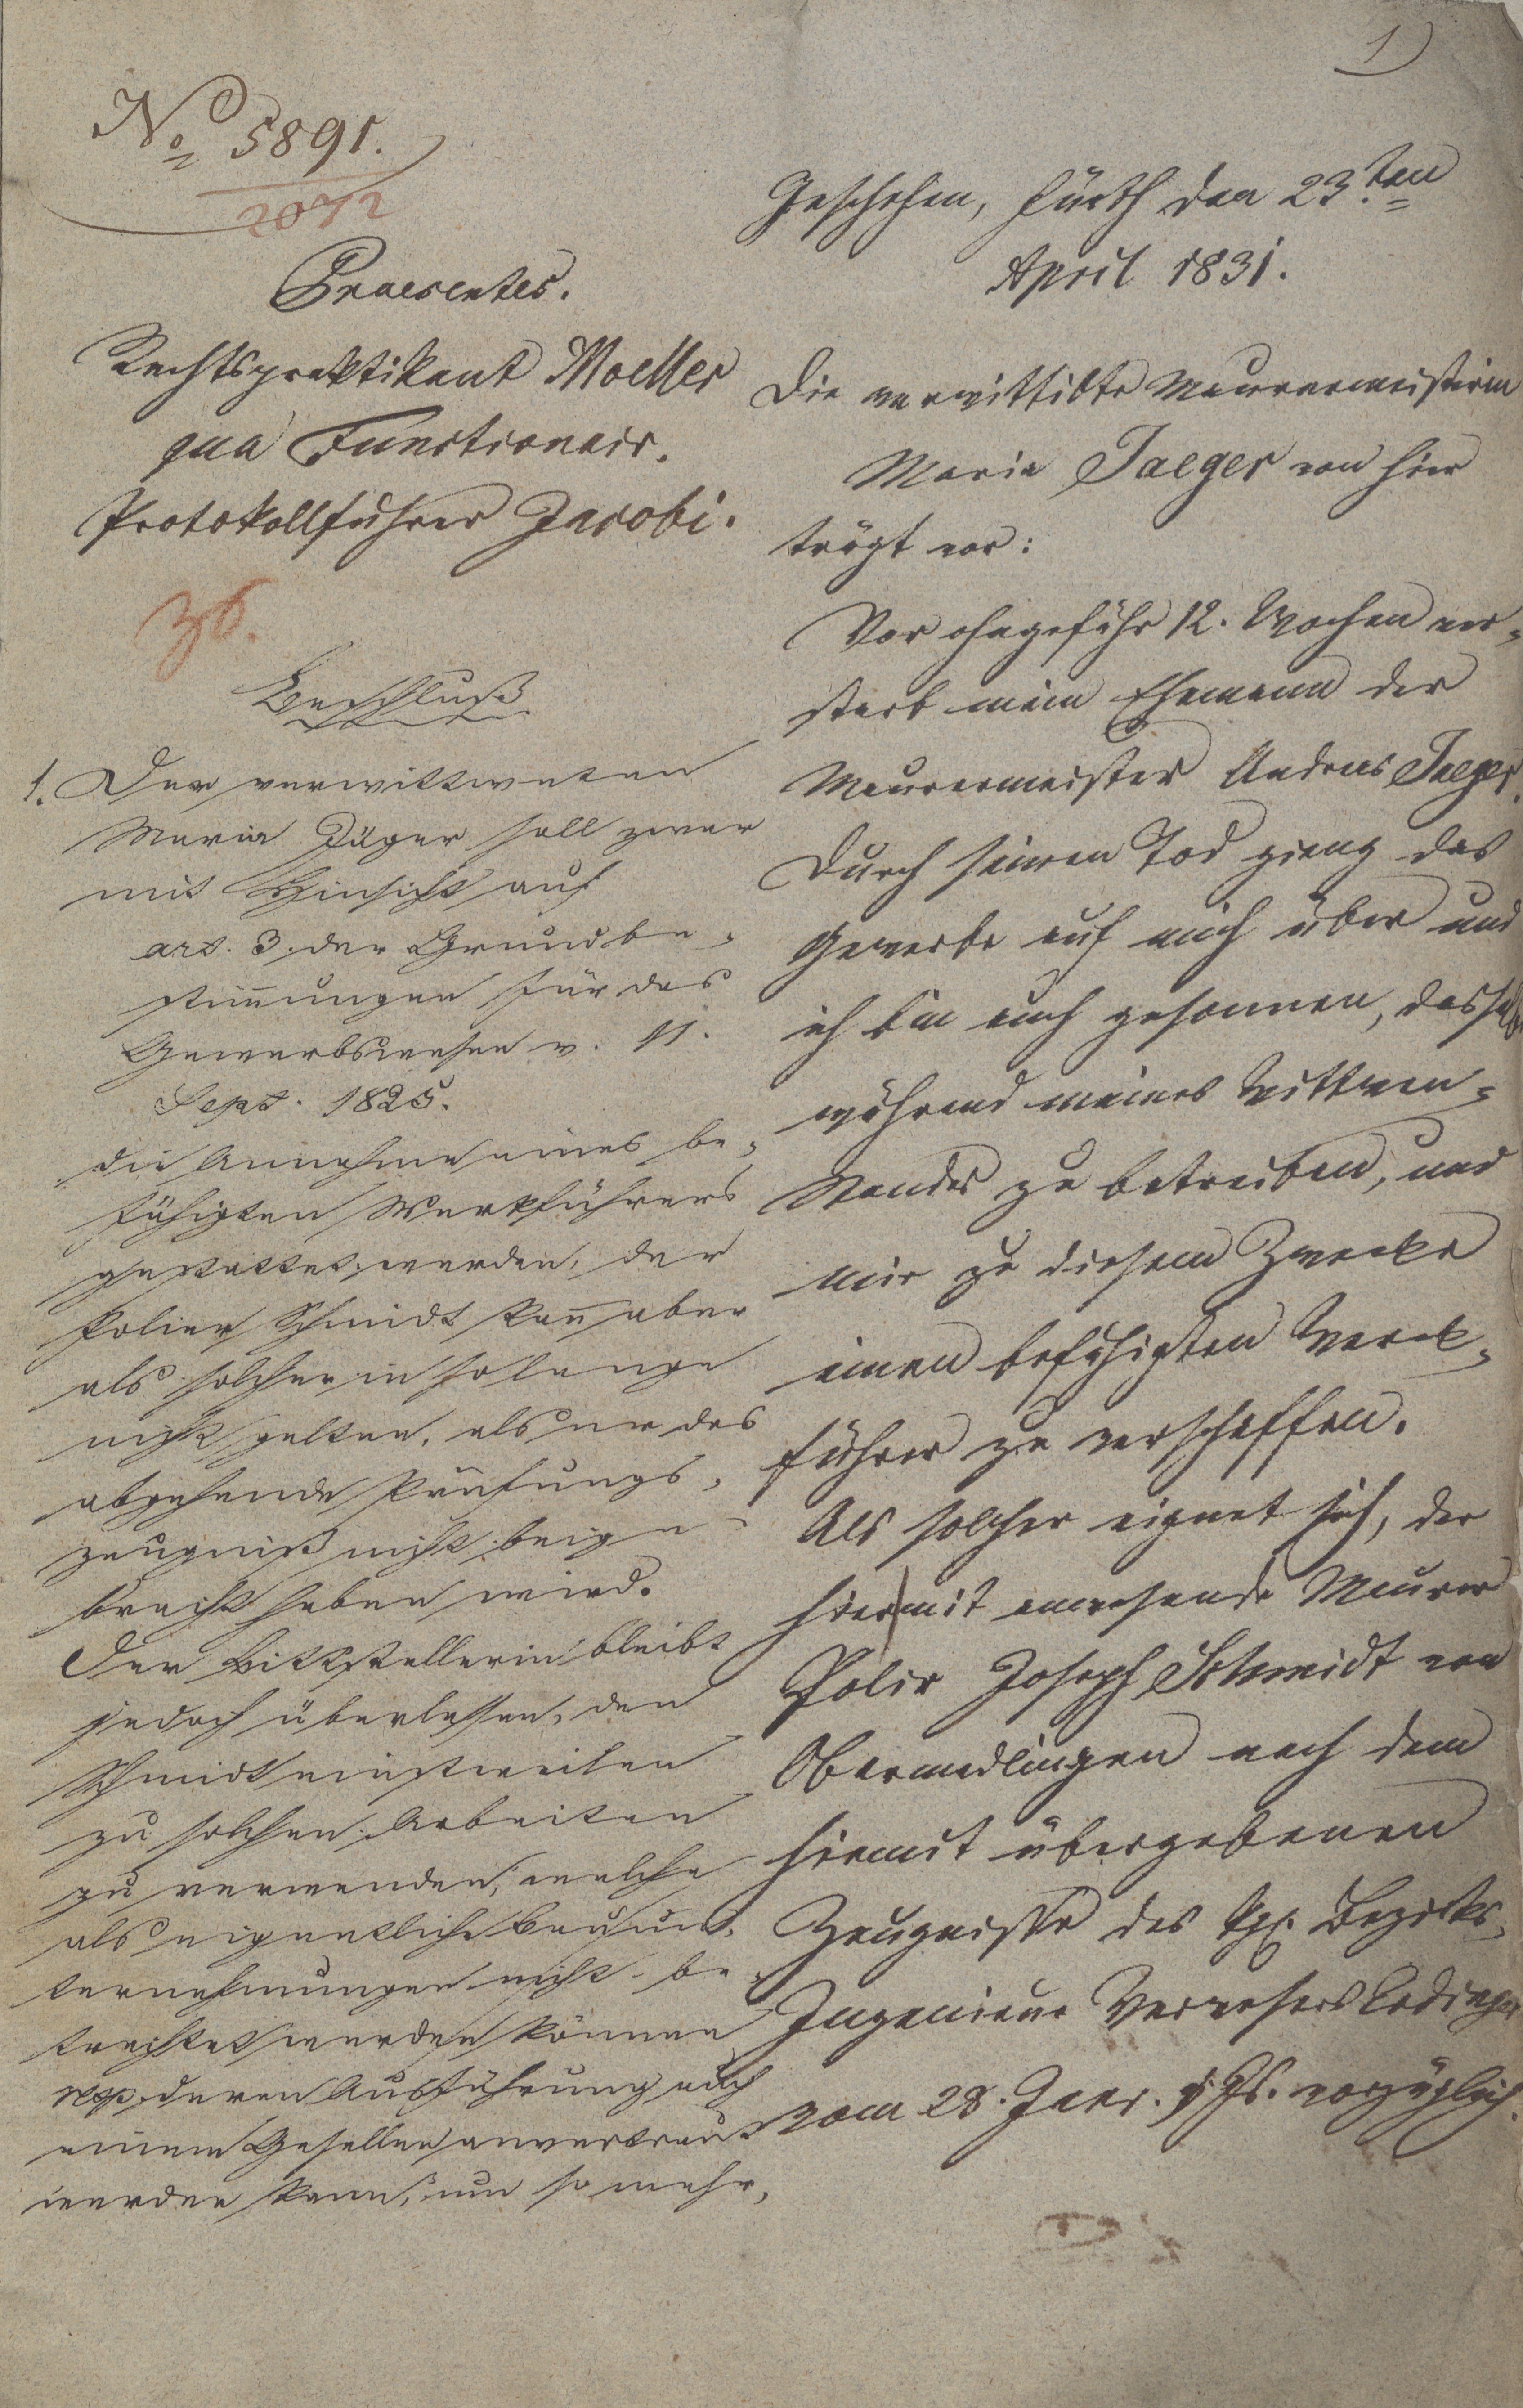 1
No 5891.
2072
Praesentes.
Rechtspraktikant Moeller
qua Functionair.
Protokollführer Jacobi.
36.
Beschluß
1. Der verwittweten
Maria Jäger soll zwar
mit Hinsicht auf
art. 3. der Grundbe-
stim̅ungen für das
Gewerbswesen v. 11.
Sept. 1825.
die Annahme eines be-
fähigten Werkführers
gestattet werden, der
Polier Schmidt kan̅ aber
als solcher in so lange
nicht gelten, als er das
abgehende Prüfungs-
zeugniß nicht beige-
bracht haben wird.
Der Bittstellerin bleibt
jedoch überlassen, den
Schmidt einstweilen
zu solchen Arbeiten
zu verwenden, welche
als eigentliche Bauun-
ternehmungen nicht be-
trachtet werden können
resp. deren Ausführung auch
einem Gesellen anvertraut
werden kann, um so mehr,
Geschehen, Fürth den 23ten
April 1831.
Die verwittibte Maurermeisterin
Maria Jaeger von hier
trägt vor:
Vor ohngefähr 12. Wochen ver-
starb mein Ehemann der
Maurermeister Andreas Jaeger.
Durch seinen Tod gieng das
Gewerbe auf mich über und
ich bin auch gesonnen, dasselbe
während meines Wittwen-
standes zu betreiben, und
mir zu diesem Zwecke
einen befähigten Werck-
führer zu verschaffen.
Als solcher eignet sich, der
hiermit anwesende Maurer
Polir Joseph Schmidt von
Obermedlingen nach dem
hiemit übergebenen
Zeugnisse des kgl. Bezirks-
Ingenieur Verwesers
vom 28. Janr. d. Js. vorzüglich.